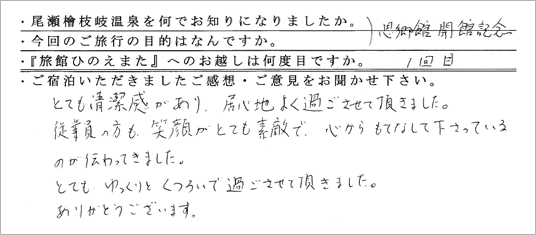 ・尾瀬檜枝岐温泉を何でお知りになりましたか。
・今回のご旅行の目的はなんですか。
思郷館 開館記念
・『旅館ひのえまた』へのお越しは何度目ですか。 1回目
・ご宿泊いただきましたご感想・ご意見をお聞かせ下さい。
とても清潔感があり、居心地よく過ごさせて頂きました。
従業員の方も、笑顔がとても素敵で、心からもてなして下さっている
のが伝わってきました。
とても ゆっくりと くつろいで過ごさせて頂きました。
ありがとうございます。